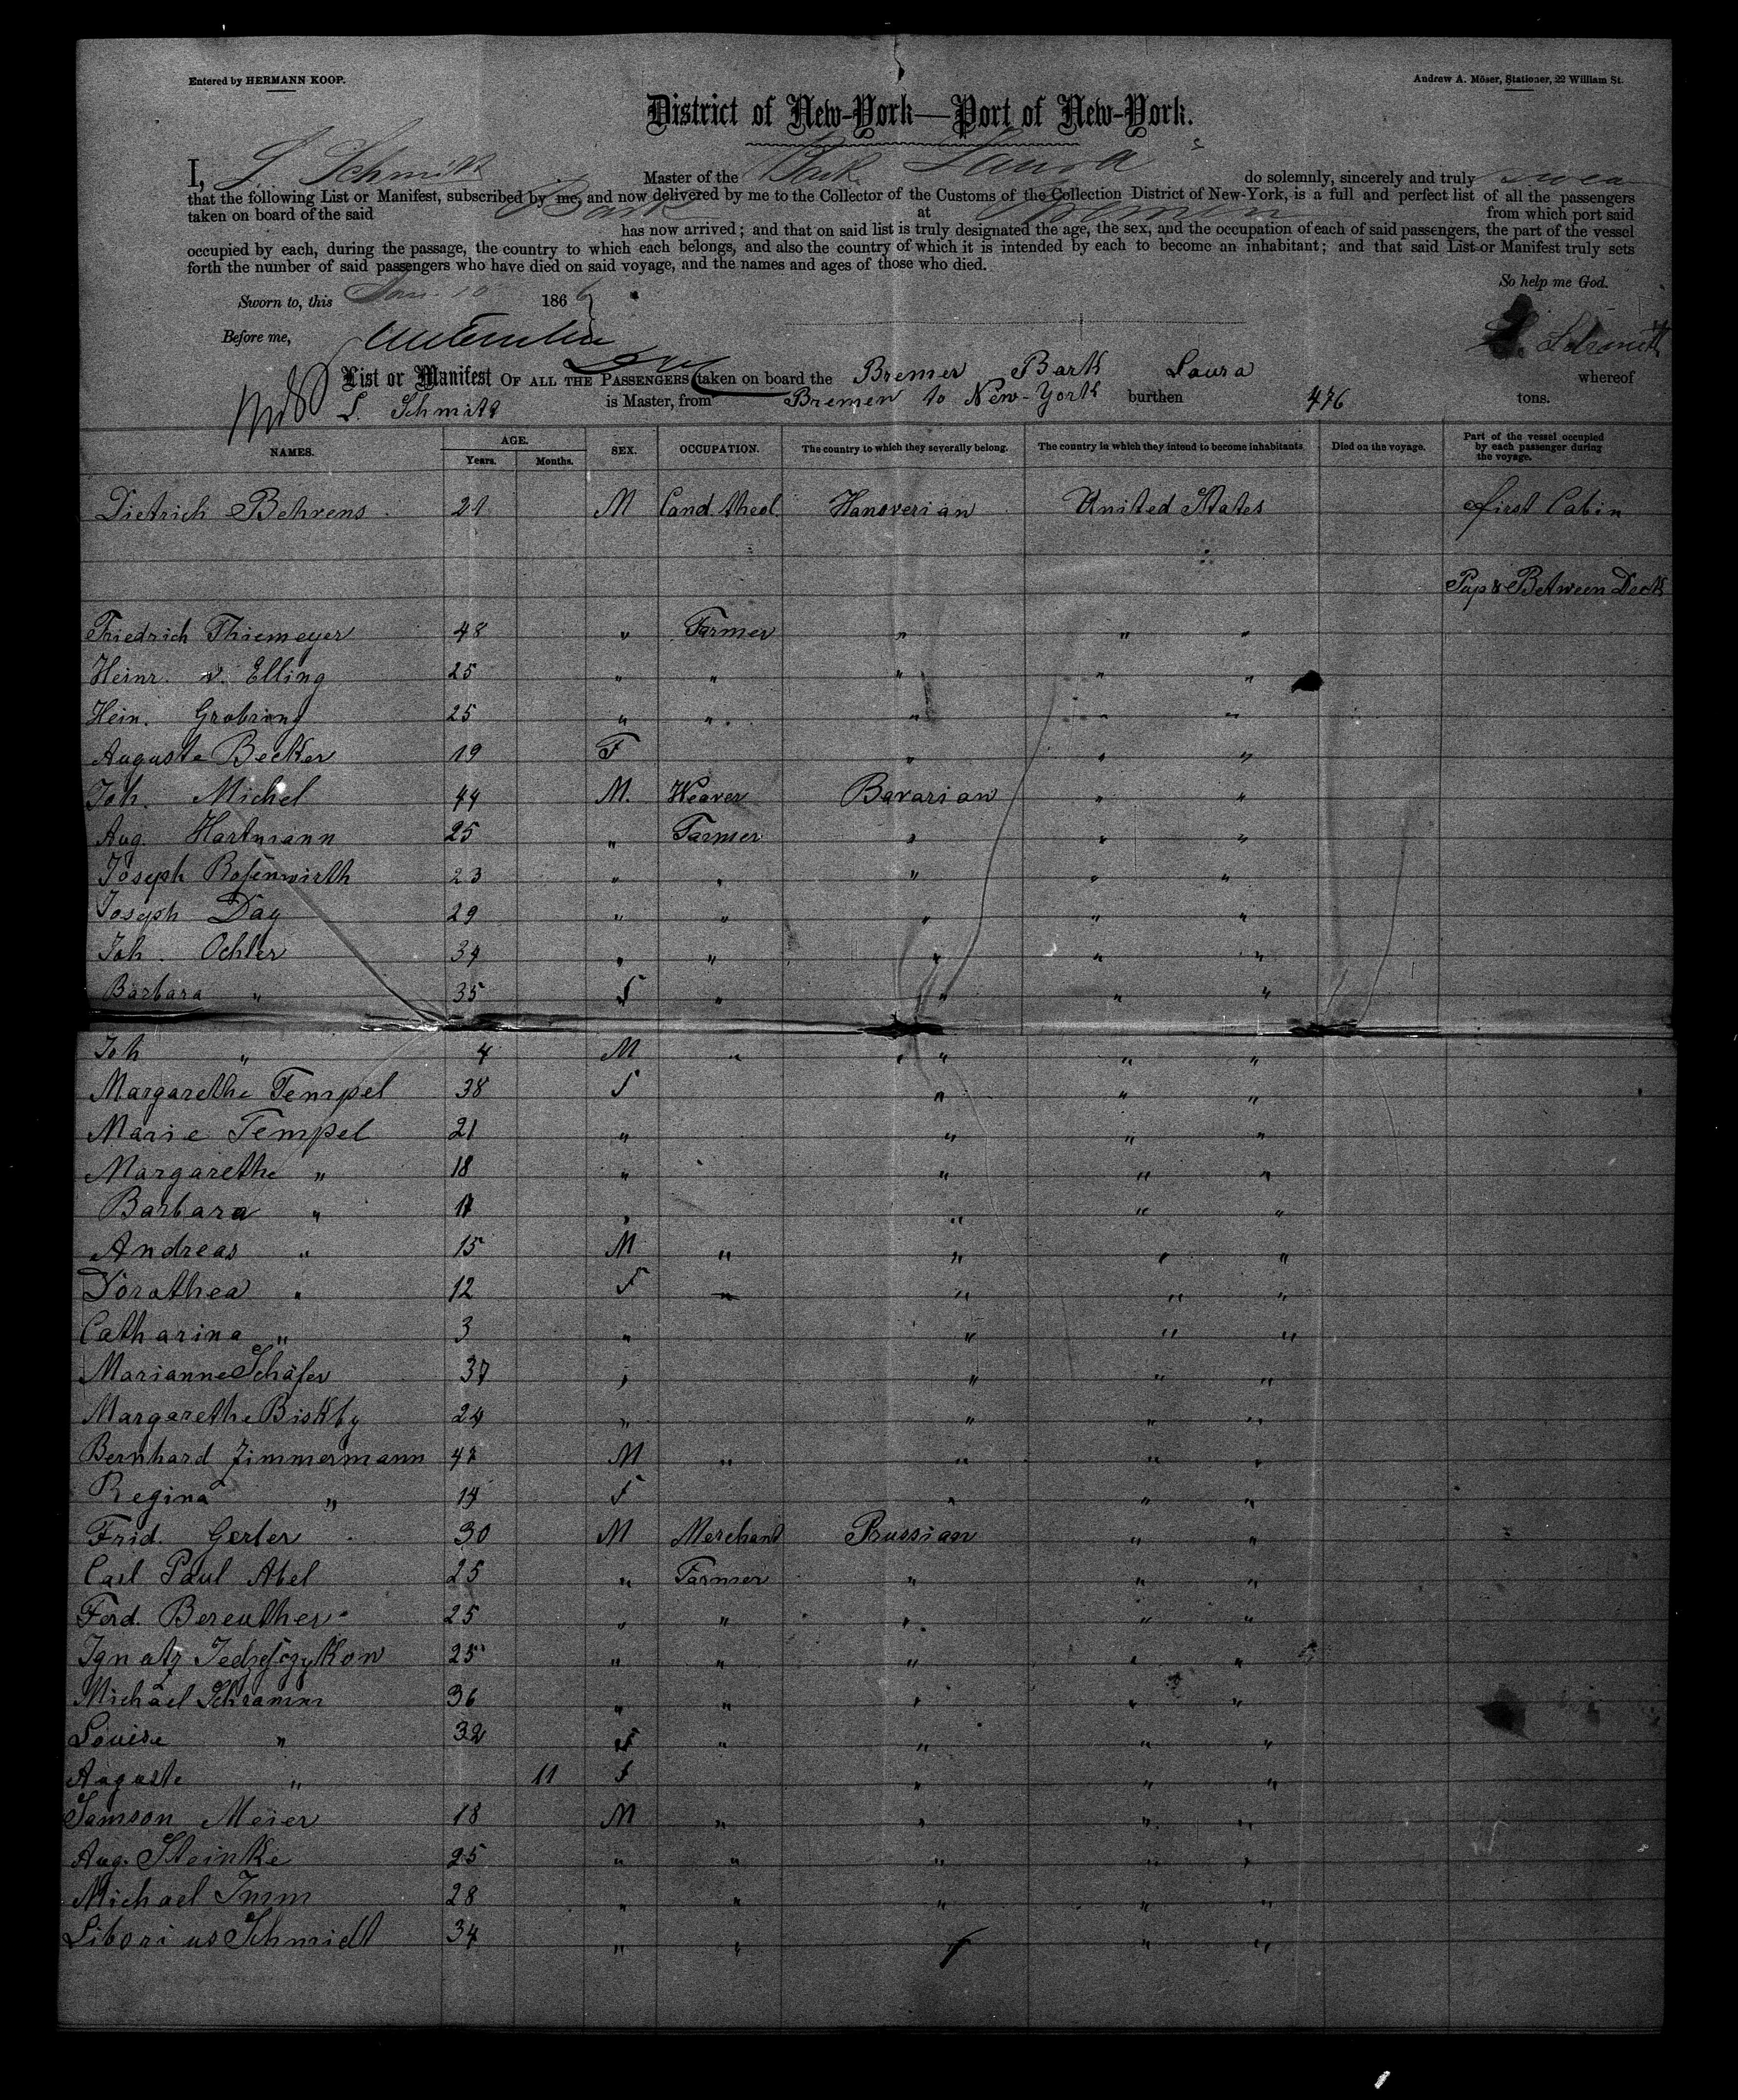 Entered by HERMANN KOOP.
Andrew A. Möser, Stationer, 22 William St.
District of New-York—Port of New-York.
I, S. Schmidt Master of the Bark Laura do solemnly, sincerely and truly swear
that the following List or Manifest, subscribed by me, and now delivered by me to the Collector of the Customs of the Collection District of New-York, is a full and perfect list of all the passengers
taken on board of the said Bark at Bremen from which port said
has now arrived; and that on said list is truly designated the age, the sex, and the occupation of each of said passengers, the part of the vessel
occupied by each, during the passage, the country to which each belongs, and also the country of which it is intended by each to become an inhabitant; and that said List or Manifest truly sets
forth the number of said passengers who have died on said voyage, and the names and ages of those who died.
So help me God.
Sworn to, this Jan. 10 1866
Before me, Schmidt
List or Manifest OF ALL THE PASSENGERS taken on board the Bremer Bark Laura whereof
S. Schmidt is Master, from Bremen to New-York burthen 476 tons.
NAMES. AGE. Years. Months. SEX. OCCUPATION. The country to which they severally belong. The country in which they intend to become inhabitants Died on the voyage. Part of the vessel occupied by each passenger during the voyage.
Dietrich Behrens 21 M Cand. theol. Hanoverian United States first Cabin
Pup & Between Deck
Friedrich Thiemeyer 48 " Farmer " " "
Heinr. v. Elling 25 " " " " "
Hein. Grobrong 25 " " " " "
Auguste Becker 19 F " " "
Joh. Michel 44 M. Weaver Bavarian " "
Aug. Hartmann 25 " Farmer " " "
Joseph Bosenwirth 23 " " " " "
Joseph Day 29 " " " " "
Joh. Oehler 34 " " " " "
Barbara " 35 F " " " "
Joh " 4 M " " " "
Margarethe Tempel 38 F " " "
Marie Tempel 21 " " " "
Margarethe " 18 " " " "
Barbara " 17 " " " "
Andreas " 15 M " " " "
Dorothea " 12 F " " " "
Catharina " 3 " " " "
Marianne Schäfer 37 " " " "
Margarethe Biskby 24 " " " "
Bernhard Zimmermann 42 M " " " "
Regina " 14 F " " "
Frid. Gerber 30 M Merchand Prussian " "
Carl Paul Abel 25 " Farmer " " "
Ferd. Bereuther 25 " " " " "
Ignatz 25 " " " " "
Michael Schramm 36 " " " " "
Louise " 32 F " " " "
Auguste " 11 F " " "
Samson Meier 18 M " " " "
Aug. Steinke 25 " " " " "
Michael Imm 28 " " " " "
Liborius Schmidt 34 " " " " "